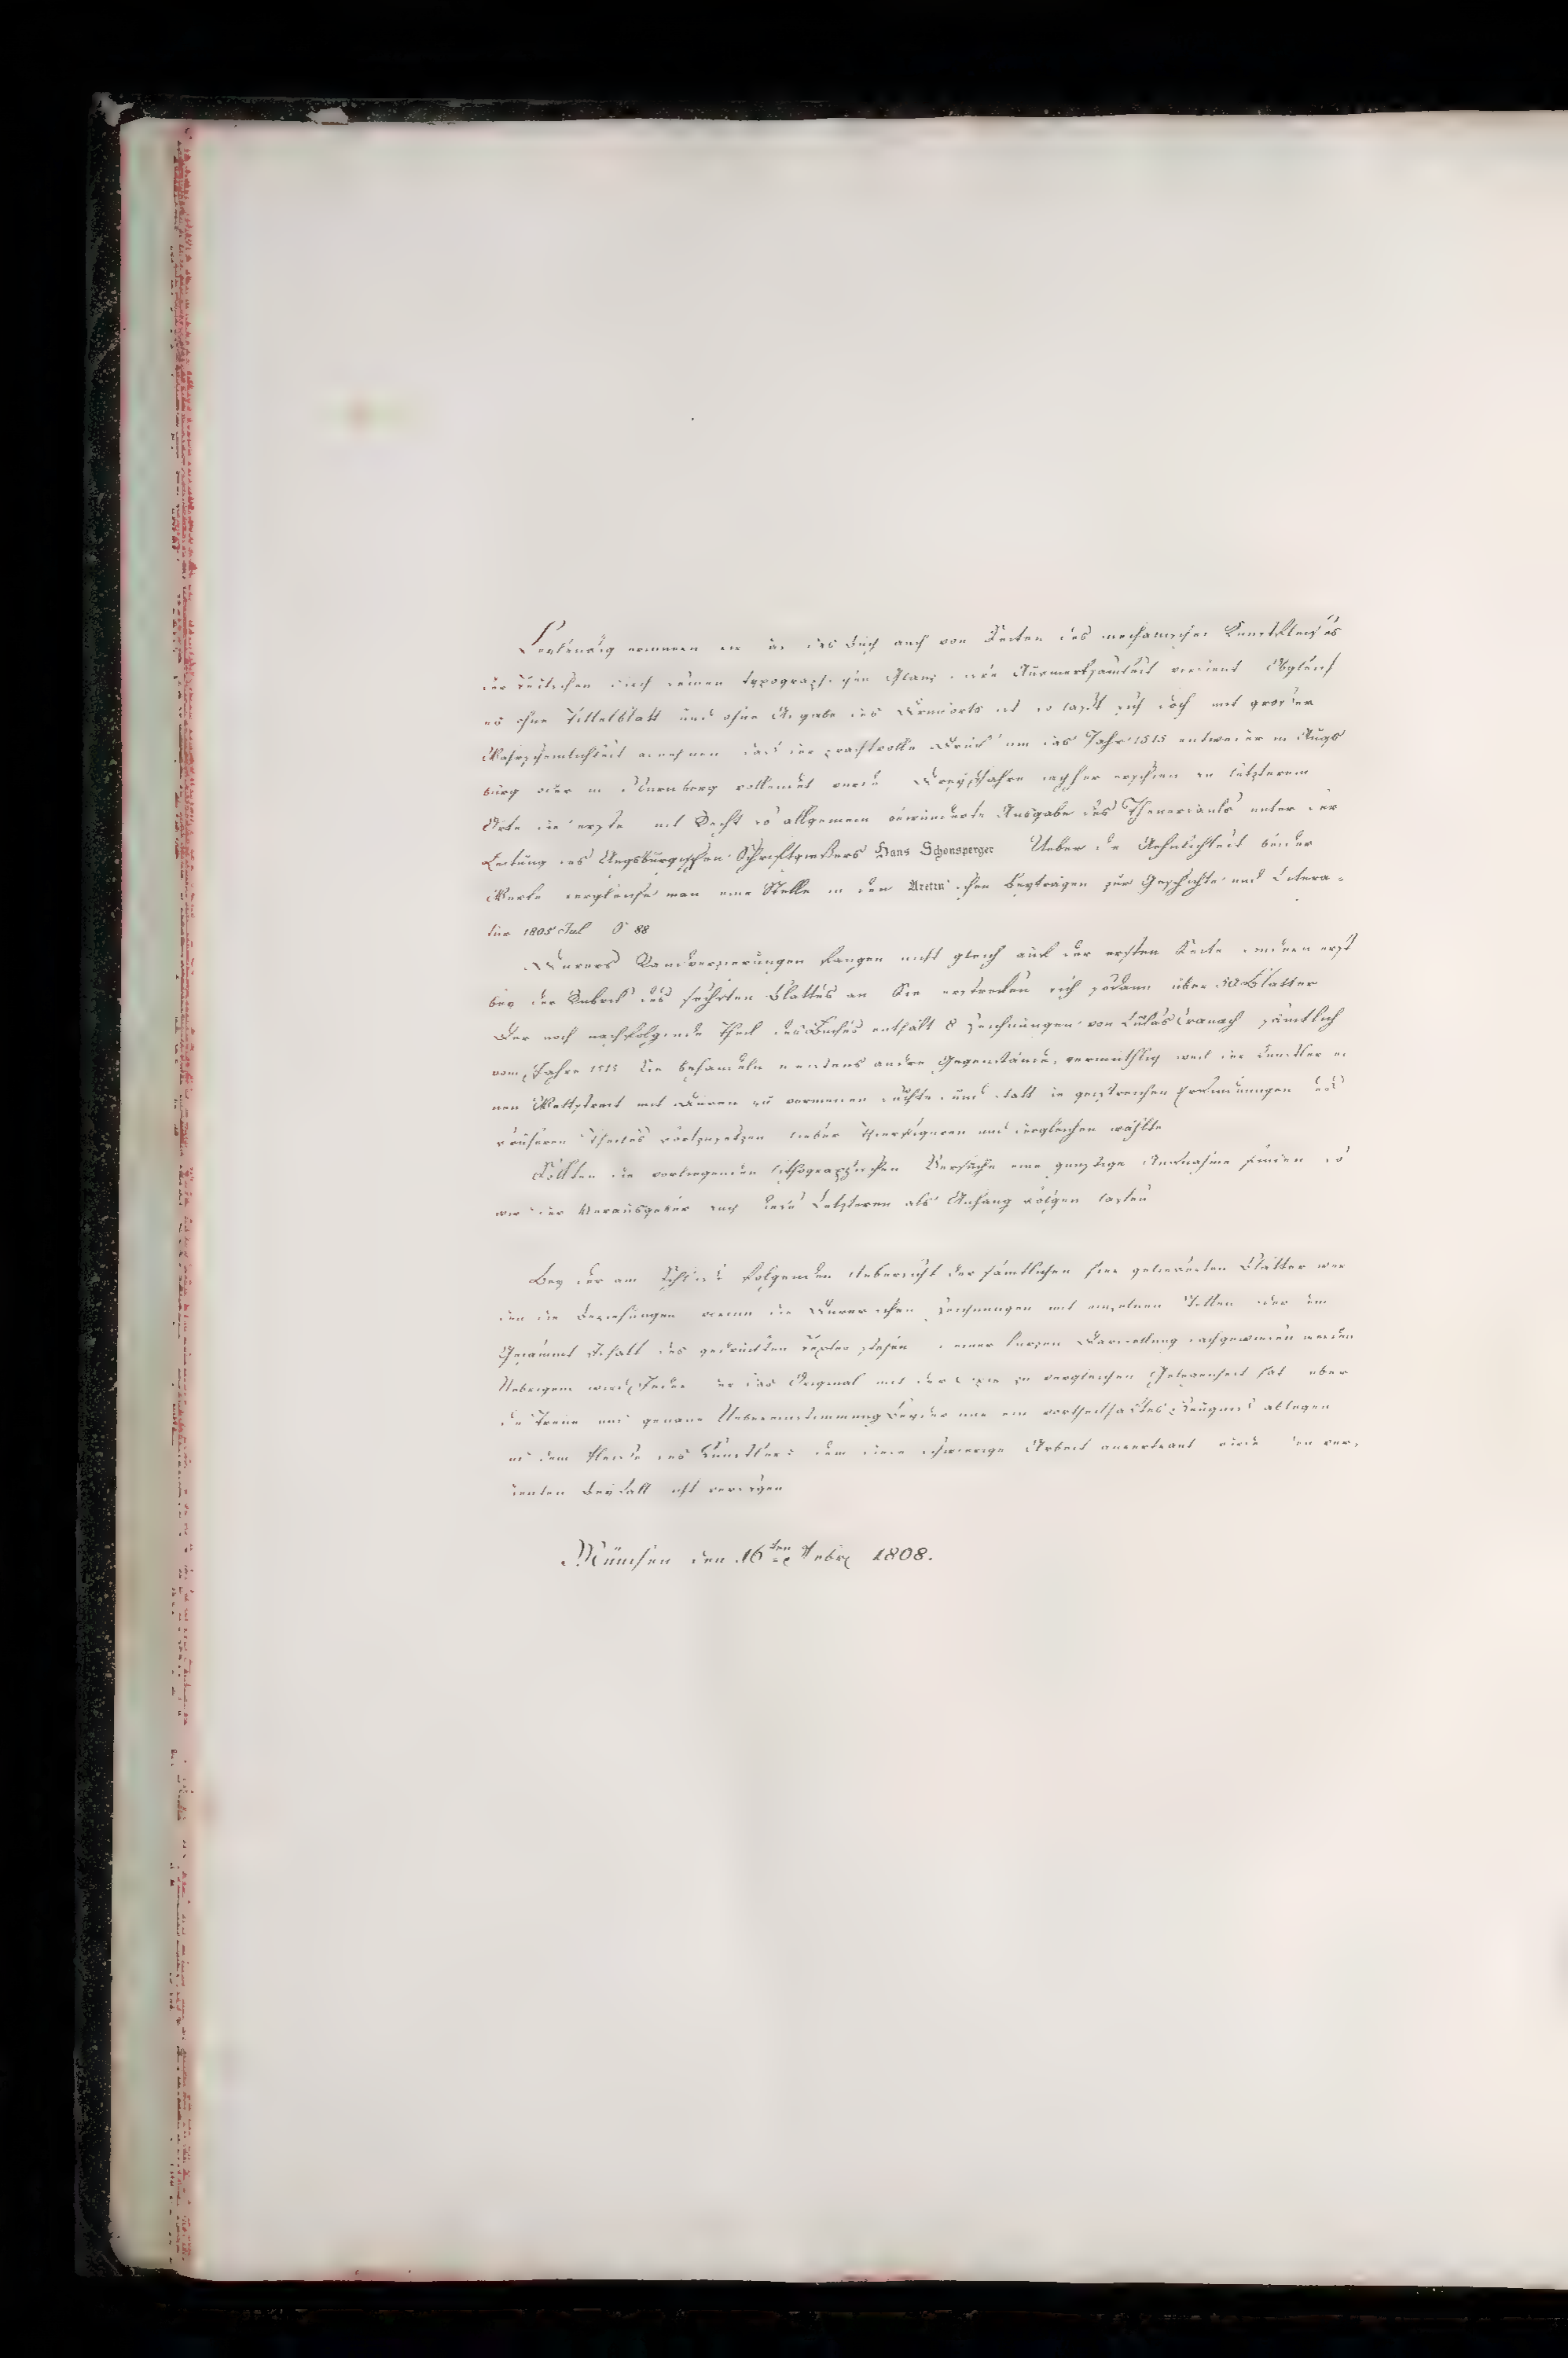 Beyläufig erinnern wir daß das Buch auch von Seiten des mechanischen Kunstfleißes
der Deutschen durch seinen typographischen Glanz Aufmerksamkeit verdient Obgleich
es ohne Tittelblatt und ohne Angabe des Druckorts ist so laßt sich doch mit großer
Wahrscheinlichkeit annehmen daß der prachtvolle Druck um das Jahr 1515 entweder in Augs
burg oder in Nürnberg vollendet wurde Drey Jahre nachher erschien an letzterem
Orte die erste mit Recht so allgemein bewunderte Ausgabe des Theuerdanks unter der
Leitung des Augsburgischen Schriftgießers Hans Schonsperger Ueber die Aehnlichkeit beider
Werke vergleiche man eine Stelle in den Aretin'schen Beyträgen zur Geschichte und Litera-
tur 1805 Jul S 88
Dürers Randverzierungen fangen nicht gleich auf der ersten Seite sondern erst
bey der Rubrick des sechsten Blattes an Sie erstrecken sich sodann über 50 Blätter
Der noch nachfolgende Theil des Buches enthält 8 Zeichnungen von Lukas Cranach sämtlich
vom Jahre 1515 Sie behandeln meistens andre Gegenstände, vermuthlich weil der Künstler ei
nen Wettstreit mit Dürern zu vermeiden suchte und statt die geistreichen Erfindungen des
früheren Theiles fortzusetzen lieber Thierfiguren und dergleichen wählte
Sollten die vorliegenden lithographischen Versuche eine günstige Aufnahme finden so
wird der Herausgeber auch diese Letzteren als Anhang folgen lassen
Bey der am Schluße folgenden Uebersicht der sämtlichen hier gelieferten Blätter wer
den die Beziehungen worinn die Dürerschen Zeichnungen mit einzelnen Stellen oder dem
Gesammt Inhalt des gedruckten Textes stehen in einer kurzen Darstellung nachgewiesen werden
Uebrigens wird Jeder der das Original mit der Copie zu vergleichen Gelegenheit hat über
die Treue und genaue Uebereinstimmung Beyder nur ein vortheilhaftes Zeugniß ablegen
und dem Fleiße des Künstlers dem diese schwierige Arbeit anvertraut wurde den ver-
dienten Beyfall nicht versagen
München den 16ten Febr 1808.